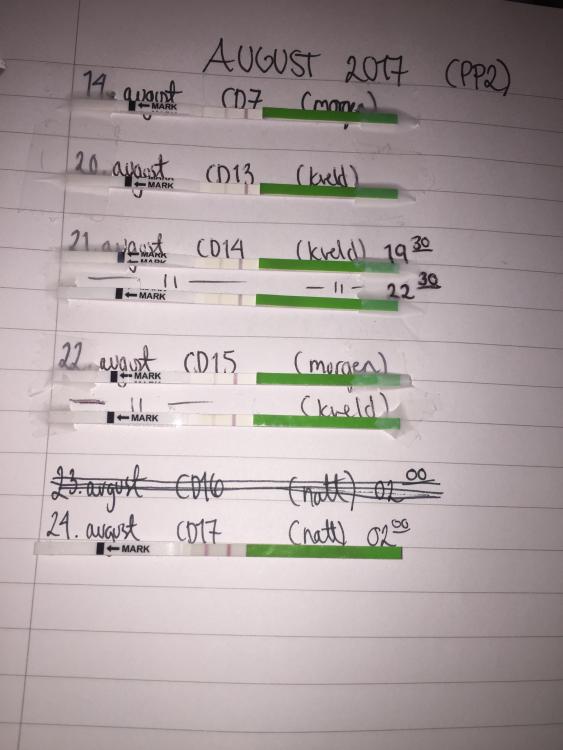 AUGUST 2017 (PP2)
14. august CD7 (morgen)
← MARK
20. august CD13 (kveld)
← MARK
21 august CD14 (kveld) 19 30
← MARK
— 11 — — 11 — 22 30
← MARK
22. august CD15 (morgen)
← MARK
— 11 — (kveld)
← MARK
23. august CD16 (natt) 02 00
24. august CD17 (natt) 02 00
← MARK